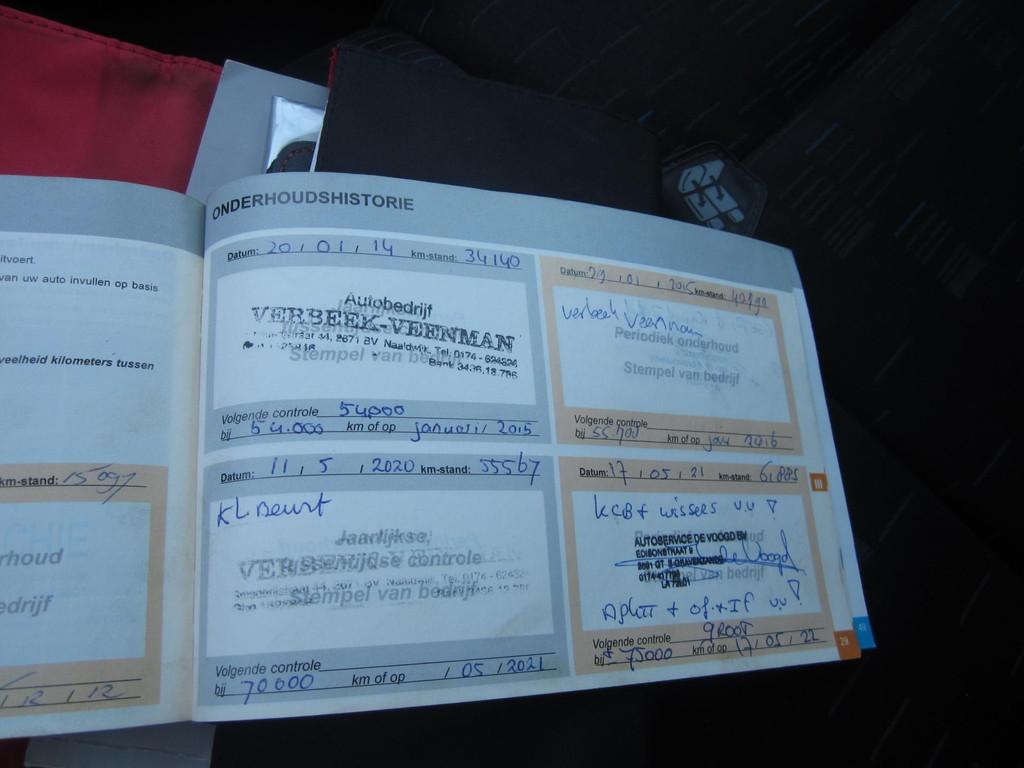 itvoert.
van uw auto invullen op basis
veelheid kilometers tussen
km-stand: 15097
rhoud
edrijf
12 12
ONDERHOUDSHISTORIE
Datum: 20 , 01 , 14 km-stand: 34140
Autobedrijf
VERBEEK-VEENMAN
44, 2671 BV Naaldwijk, Tel. 0174 - 624326
Bank 3436.18.796
Stempel van bedrijf
Volgende controle 54000
bij 54.000 km of op januari 2015
Datum: 29 , 01 , 2015 km-stand:
Verbeek Veenman
Periodiek onderhoud
Stempel van bedrijf
Volgende controle
bij 55 700 km of op jan 2016
Datum: 11 , 5 , 2020 km-stand: 55567
KL Beurt
Jaarlijkse
tussentijdse controle
VERBEEK
Stempel van bedrijf
Volgende controle
bij 70000 km of op / 05 / 2021
Datum: 17 , 05 , 21 km-stand: 61885
KCB + wissers vv
AUTOSERVICE DE VOOGD EN
EDISONSTRAAT
de Voogd
van bedrijf
Volgende controle GROOT
bij 75000 km of op 17 , 05 , 22
III
29
49